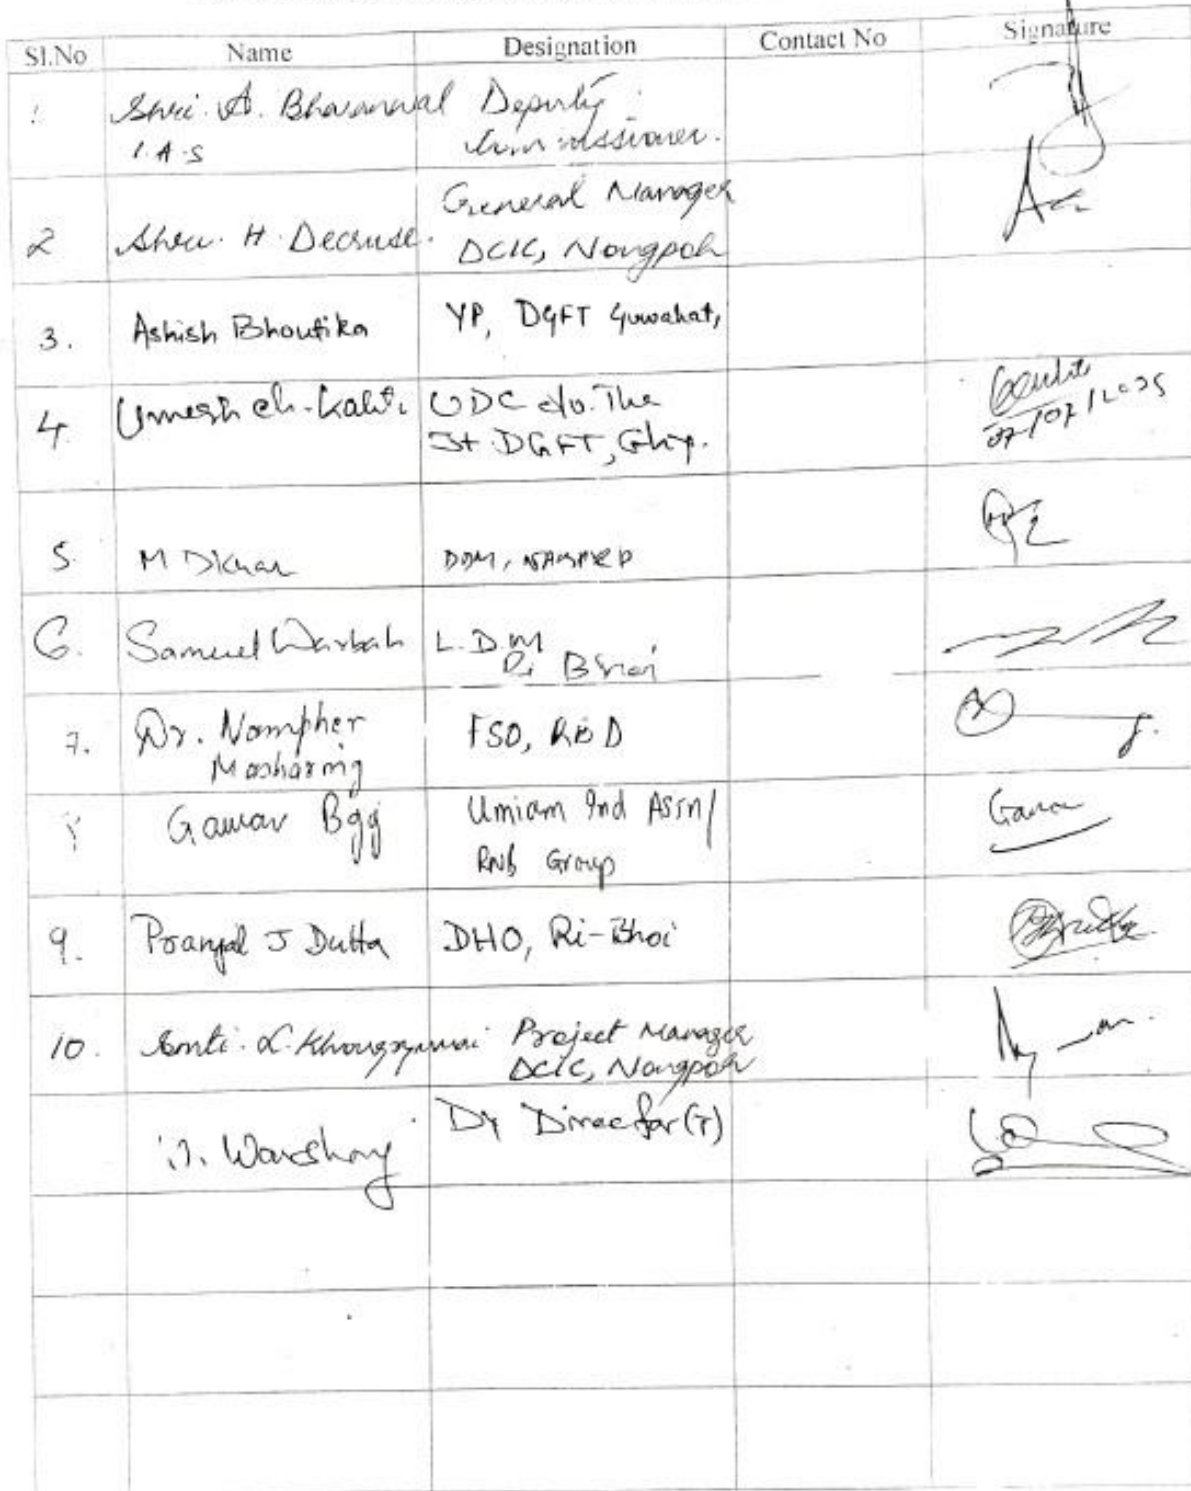 Sl.No Name Designation Contact No Signature
1 Shri. A. Bhavanwal Deputy
I.A.S Commissioner.
General Manager
2 Shri. H. Decruse. DCIC, Nongpoh
3. Ashish Bhoutika YP, DGFT Guwahati
4. Umesh ch. Kalita UDC o/o. The
Jt. DGFT, Ghy.
07/07/2025
5. M Dkhar DDM, NABARD
6. Samuel Warbah L.D.M
Ri Bhoi
7. Dr. Nampher FSO, RBD
Masharing
Gaurav Umiam Ind Assn/
RNB Group
Gaurav
9. Pranjal J Dutta DHO, Ri-Bhoi
10. Smti. L. Project Manager
DCIC, Nongpoh
Dy Director(T)